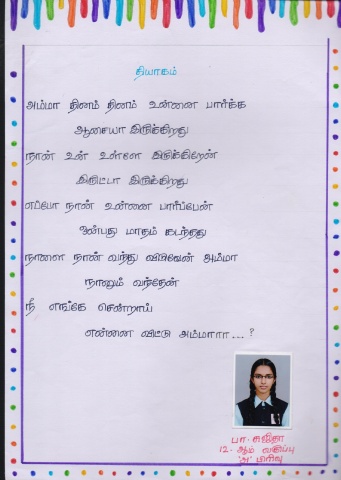 தியாகம்
அம்மா தினம் தினம் உன்னை பார்க்க
ஆசையா இருக்கிறது
நான் உன் உள்ளே இருக்கிறேன்
இருட்டா இருக்கிறது
எப்போ நான் உன்னை பார்ப்பேன்
ஒன்பது மாதம் கடந்தது
நாளை நான் வந்து விடுவேன் அம்மா
நானும் வந்தேன்
நீ எங்கே சென்றாய்
என்னை விட்டு அம்மாாா ... ?
பா. சுஜிதா
12-ஆம் வகுப்பு
'அ' பிரிவு